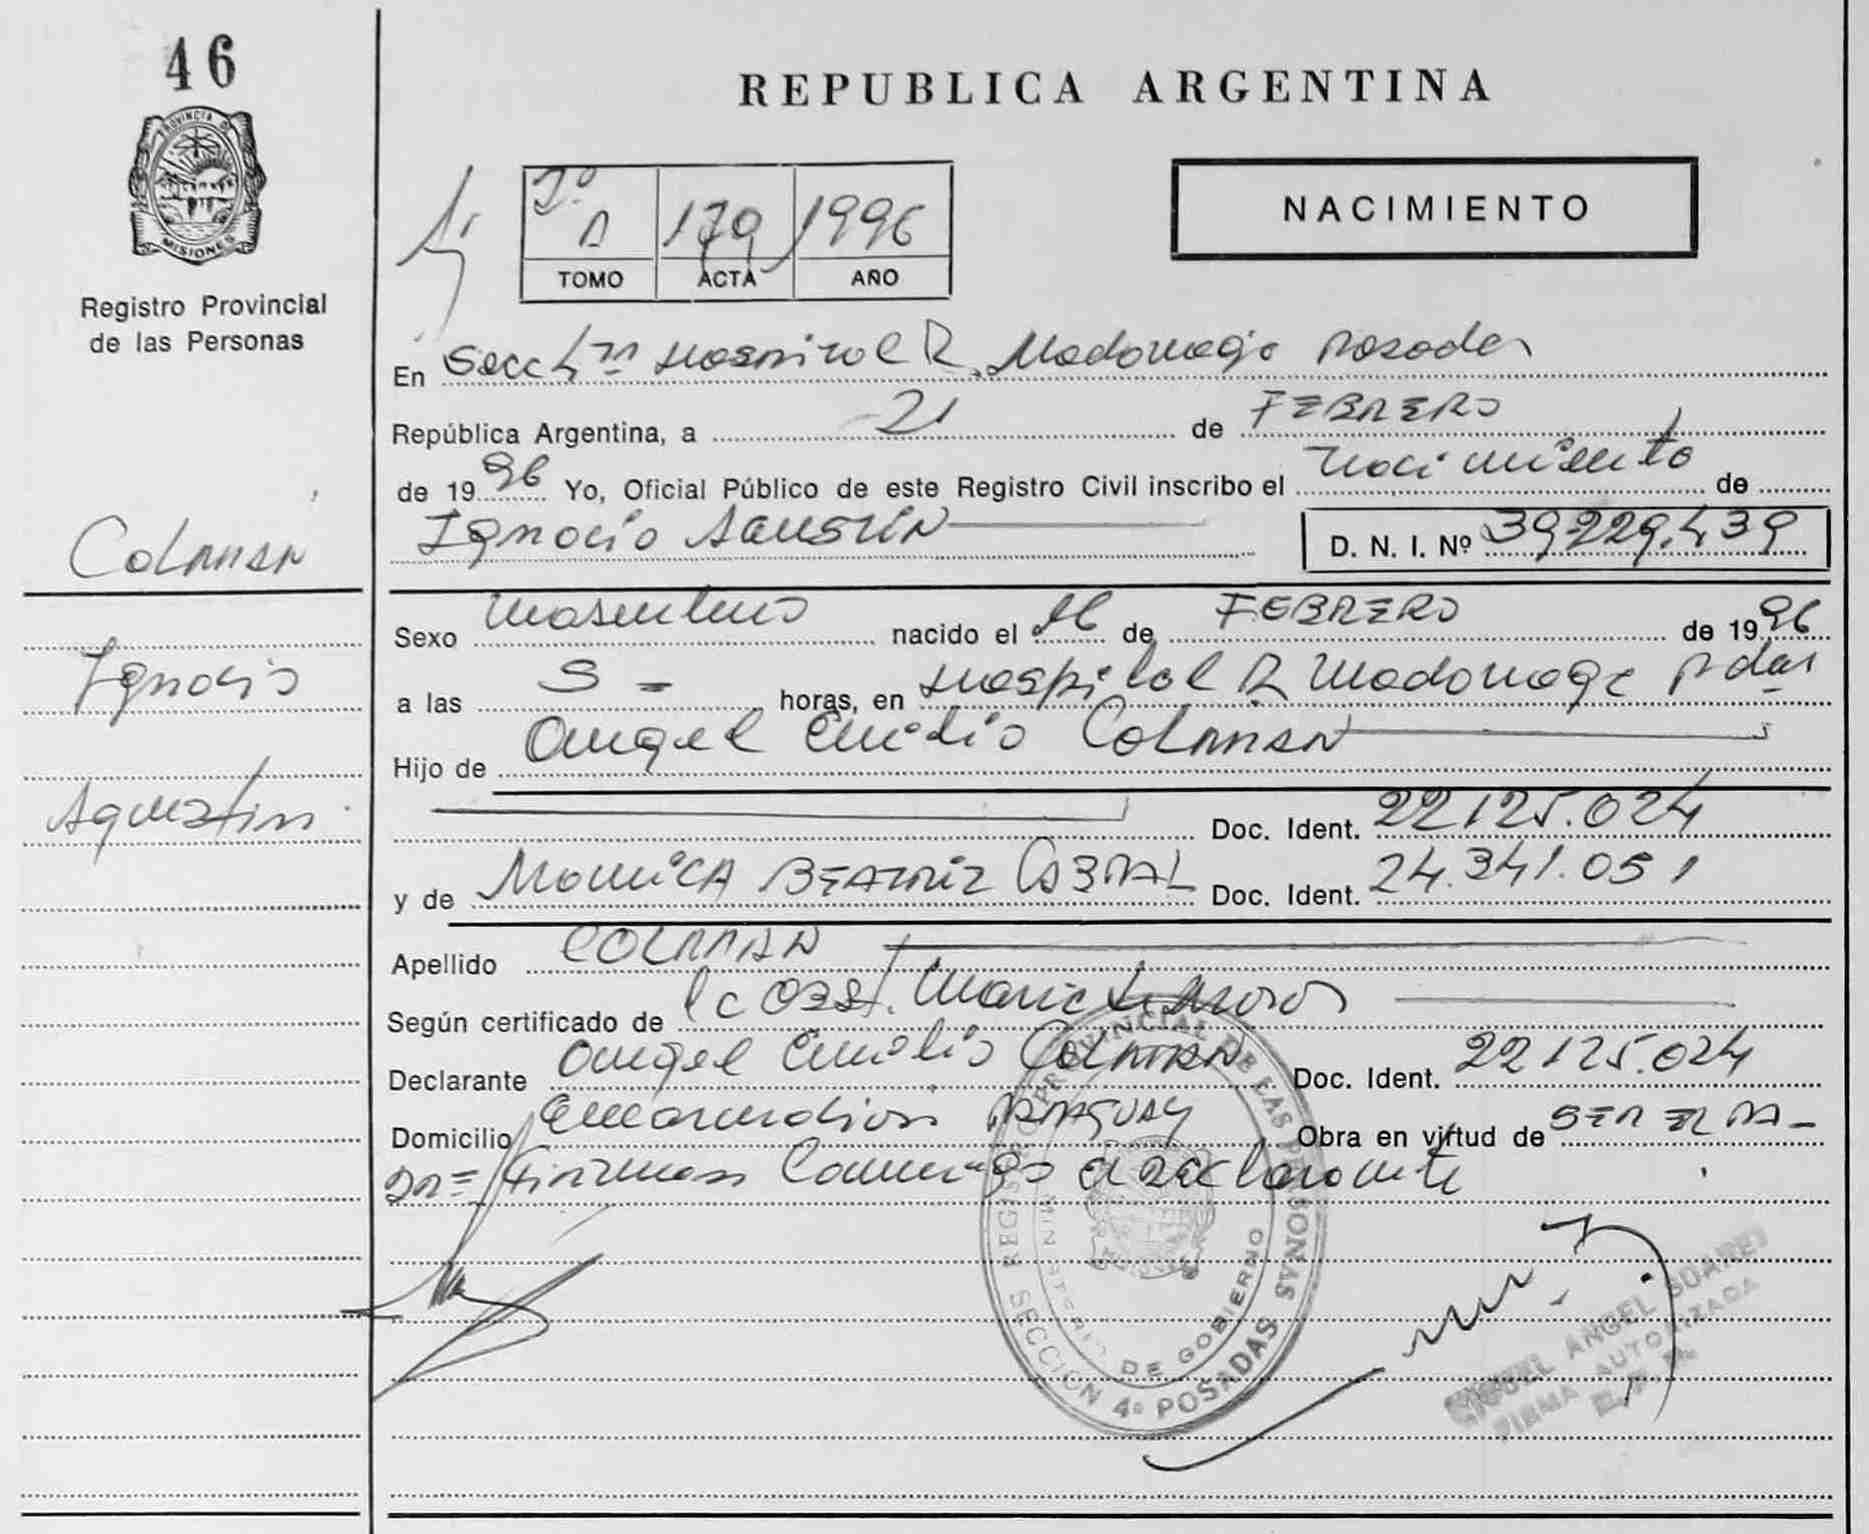 46
PROVINCIA DE
MISIONES
Registro Provincial
de las Personas
Colman
Ignacio
Agustin
REPUBLICA ARGENTINA
NACIMIENTO
1º
A 179 1996
TOMO ACTA AÑO
En Secc 4ta Hospital R. Madariaga Posadas
República Argentina, a 21 de FEBRERO
de 1996 Yo, Oficial Público de este Registro Civil inscribo el nacimiento de
Ignacio AGUSTIN D. N. I. Nº 39229.439
Sexo masculino nacido el 16 de FEBRERO de 1996
a las horas, en Hospital R Madariaga Pdas
Hijo de Angel Emilio COLMAN
Doc. Ident. 22125.024
y de MONICA BEATRIZ CABRAL Doc. Ident. 24.341.051
Apellido COLMAN
Según certificado de Obst. Maria
Declarante Angel Emilio COLMAN Doc. Ident. 22125.024
Domicilio Encarnación PARAGUAY Obra en virtud de SER EL PA-
DRE Firman Conmigo el declarante
REGISTRO PROVINCIAL DE LAS PERSONAS
MINISTERIO DE GOBIERNO
SECCION 4º POSADAS
MIGUEL ANGEL SUAREZ
FIRMA AUTORIZADA